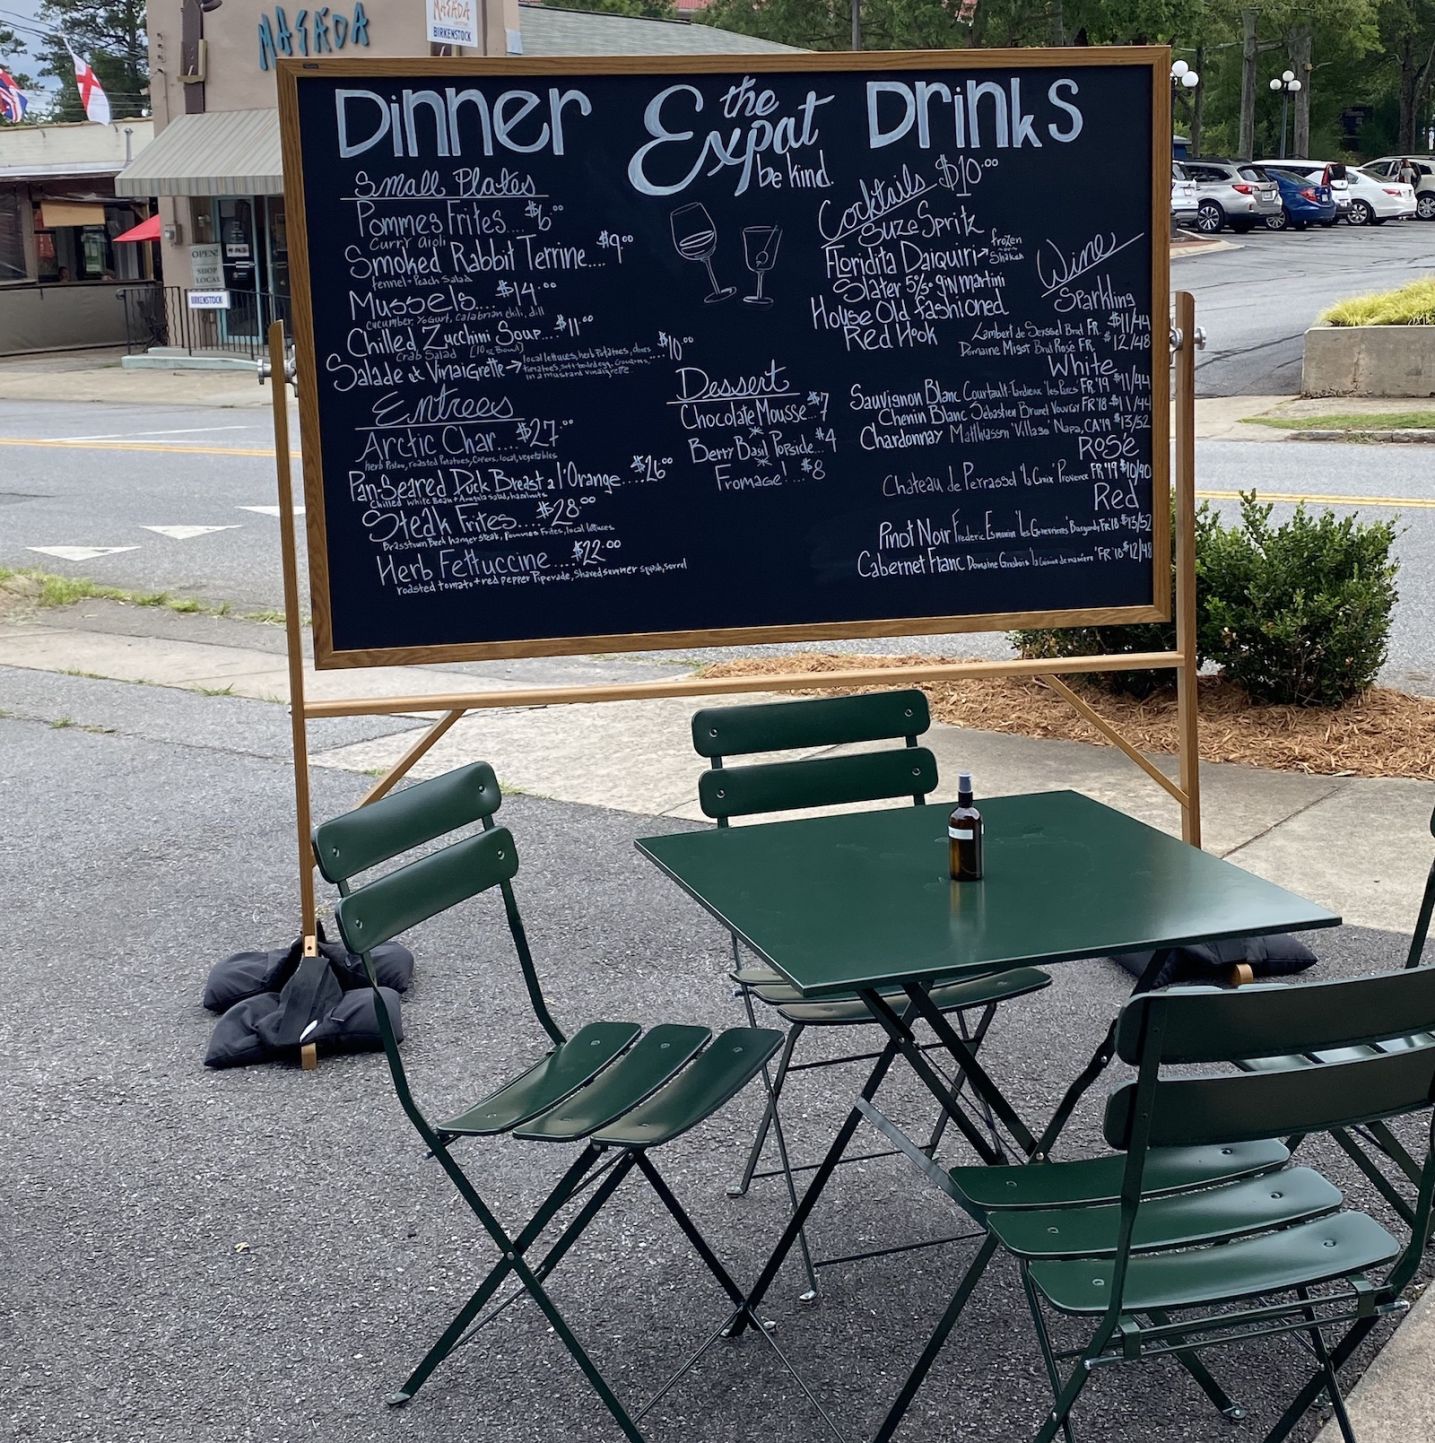 MASADA
MASADA
BIRKENSTOCK
OPEN!
SHOP
LOCAL
BIRKENSTOCK
Dinner
the
Expat
be kind.
Drinks
Small Plates
Pommes Frites.... $6.00
Curry Aioli
Smoked Rabbit Terrine.... $9.00
fennel + Peach Salad
Mussels.... $14.00
Cucumber, Yogurt, Calabrian chili, dill
Chilled Zucchini Soup... $11.00
Crab Salad (10oz Bowl)
Salade et Vinaigrette → local lettuces, herb Potatoes, .... $10.00
tomatoes, soft-boiled egg, croutons,
in a mustard vinaigrette.
Entrees
Arctic Char.... $27.00
herb Pistou, roasted Potatoes, Capers, local vegetables
Pan-Seared Duck Breast a l'Orange.... $26.00
Chilled White Bean + Arugula Salad, hazelnuts
Steak Frites.... $28.00
Brasstown Beef hanger steak, Pommes Frites, local lettuces
Herb Fettuccine.... $22.00
roasted tomato + red pepper Piperade, Shaved summer squash, sorrel
Dessert
Chocolate Mousse... $7
Berry Basil Popsicle... $4
Fromage!... $8
Cocktails $10.00
Suze Spritz
Floridita Daiquiri > frozen
shaken
Slater 5%. gin martini
House Old fashioned
Red Hook
Wine
Sparkling
Lambert de Seyssel Brut FR. $11/44
Domaine Migot Brut Rosé FR. $12/48
White
Sauvignon Blanc FR '19 $11/44
Chenin Blanc Sebastien Brunet Vouvray FR '18 $11/44
Chardonnay Matthiasson 'Village' Napa, CA '19 $13/52
Rosé
Chateau de Perrassol 'la Croix' Provence FR '19 $10/40
Red
Pinot Noir Frederic Esmonin 'les Genevrieres' Burgundy, FR '18 $13/52
Cabernet Franc Domaine FR '18 $12/48